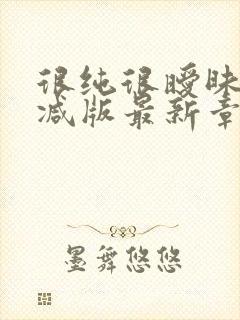 很纯很暧昧
减版最新章
墨舞悠悠